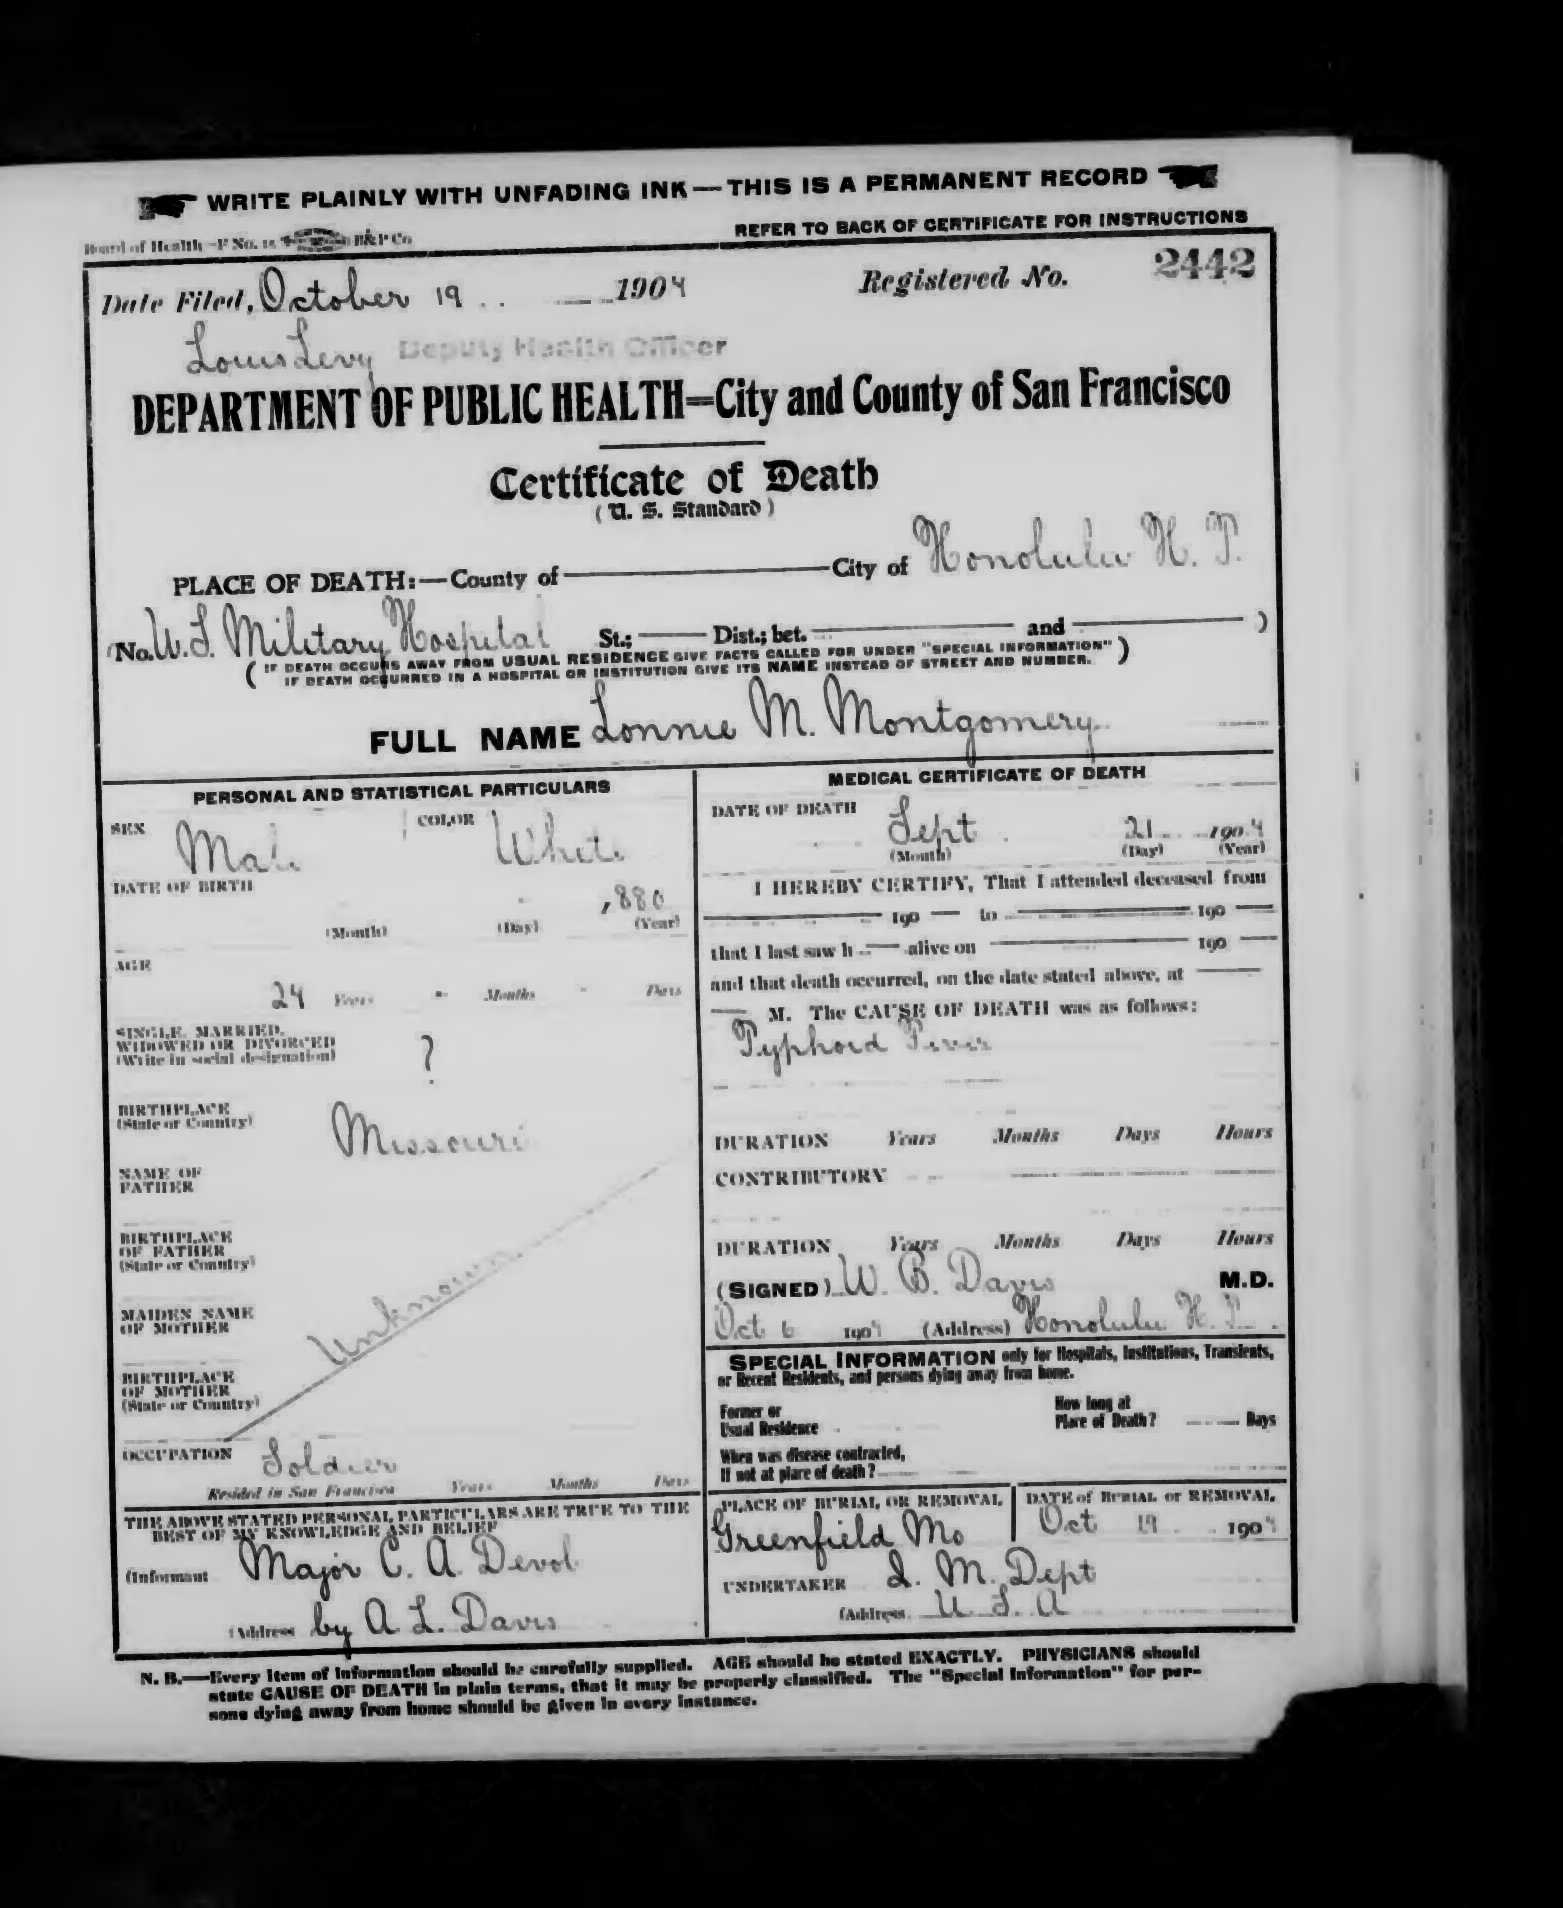 WRITE PLAINLY WITH UNFADING INK—THIS IS A PERMANENT RECORD
Board of Health—F No. 15 B&P Co
REFER TO BACK OF CERTIFICATE FOR INSTRUCTIONS
Date Filed, October 19 1904 Registered No. 2442
Louis Levy Deputy Health Officer
DEPARTMENT OF PUBLIC HEALTH=City and County of San Francisco
Certificate of Death
(U. S. Standard)
PLACE OF DEATH:—County of City of Honolulu H. T.
(No. U.S. Military Hospital St.; Dist.; bet. and )
(IF DEATH OCCURS AWAY FROM USUAL RESIDENCE GIVE FACTS CALLED FOR UNDER "SPECIAL INFORMATION"
IF DEATH OCCURRED IN A HOSPITAL OR INSTITUTION GIVE ITS NAME INSTEAD OF STREET AND NUMBER.)
FULL NAME Lonnie M. Montgomery
PERSONAL AND STATISTICAL PARTICULARS
SEX Male COLOR White
DATE OF BIRTH
1880
(Month) (Day) (Year)
AGE
24 Years - Months - Days
SINGLE, MARRIED,
WIDOWED OR DIVORCED
(Write in social designation) ?
BIRTHPLACE
(State or Country) Missouri
NAME OF
FATHER
BIRTHPLACE
OF FATHER
(State or Country)
Unknown
MAIDEN NAME
OF MOTHER
BIRTHPLACE
OF MOTHER
(State or Country)
OCCUPATION Soldier
Resided in San Francisco Years Months Days
THE ABOVE STATED PERSONAL PARTICULARS ARE TRUE TO THE
BEST OF MY KNOWLEDGE AND BELIEF
(Informant Major C. A. Devol
(Address by A. L. Davis
MEDICAL CERTIFICATE OF DEATH
DATE OF DEATH
Sept 21 1904
(Month) (Day) (Year)
I HEREBY CERTIFY, That I attended deceased from
190 to 190
that I last saw h alive on 190
and that death occurred, on the date stated above, at
M. The CAUSE OF DEATH was as follows:
Typhoid Fever
DURATION Years Months Days Hours
CONTRIBUTORY
DURATION Years Months Days Hours
(SIGNED) W. B. Davis M.D.
Oct 6 1904 (Address) Honolulu H. T.
SPECIAL INFORMATION only for Hospitals, Institutions, Transients,
or Recent Residents, and persons dying away from home.
Former or
Usual Residence
How long at
Place of Death? Days
When was disease contracted,
If not at place of death?
PLACE OF BURIAL OR REMOVAL
Greenfield Mo
DATE of BURIAL or REMOVAL
Oct 19 1904
UNDERTAKER Q. M. Dept
(Address U. S. A
N. B.—Every item of information should be carefully supplied. AGE should be stated EXACTLY. PHYSICIANS should
state CAUSE OF DEATH in plain terms, that it may be properly classified. The "Special Information" for per-
sons dying away from home should be given in every instance.